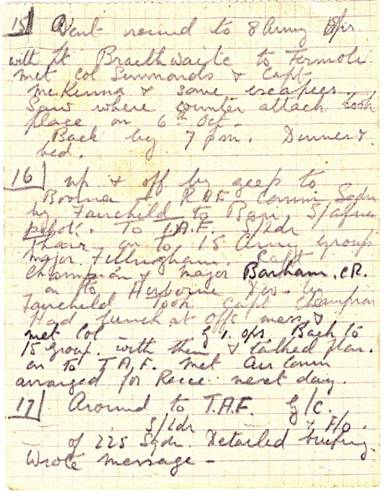 15 Went round to 8 Army H/Qrs
with Lt Braithwaite to Termoli
met Col Simmonds & Capt
McKenna & some escapees.
Saw where counter attack took
place on 6th Oct.
Back by 7 pm. Dinner &
bed.
16 up & off by jeep to
R.A.F. Comm Sqdn
by Fairchild to Bari S/African
pilot. To T.A.F. S/Ldr
on to 15 Army Group
Major Fillingham. Capt
Champion & Major Barham. C.R.
on to Airborne Div. by
Fairchild took Capt Champion
Had lunch at Offs mess &
met Col G 1. ops. Back to
15 Group with them & talked plan.
on to T.A.F. met Air Comm
arranged for Recce next day.
17 Around to T.A.F. G/C.
S/Ldr & F/O.
of 225 Sqdn. Detailed briefing.
Wrote message -